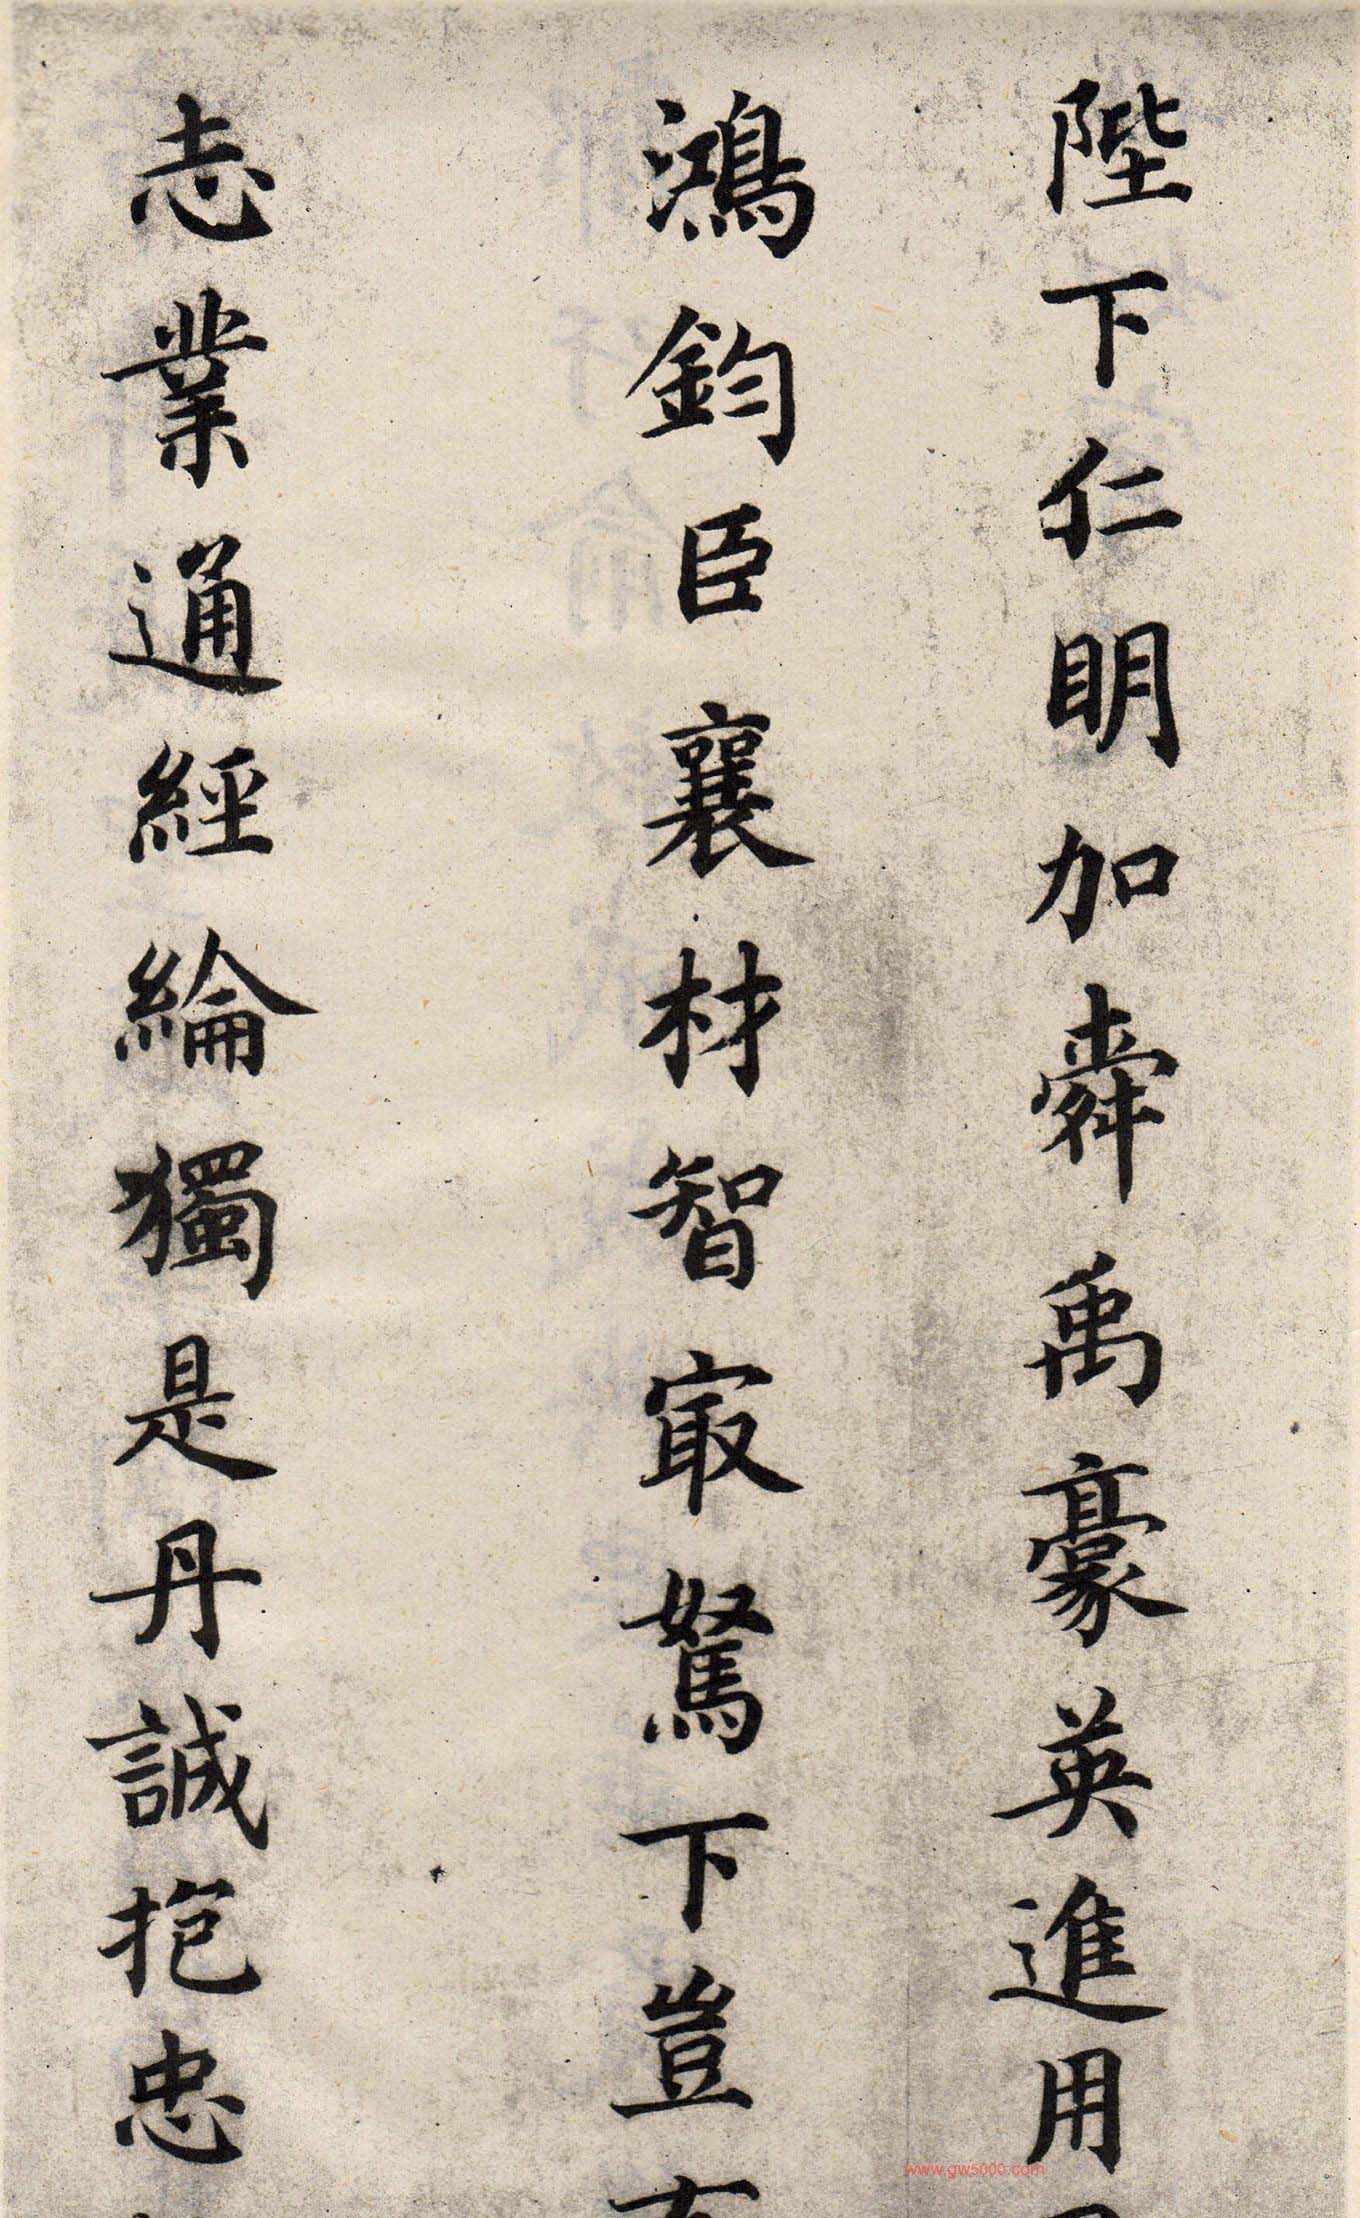 陛下仁明加舜禹豪英進用
鴻鈞臣襄材智㝡駑下豈
志業通經綸獨是丹誠抱忠
www.gw5000.com